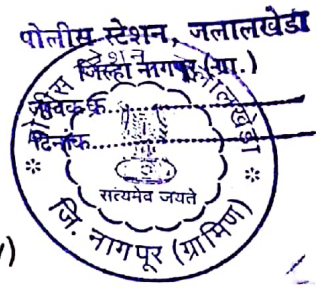 पोलीस स्टेशन, जलालखेडा
जिल्हा नागपूर (ग्रा.)
जावक क्र.....................
दिनांक.....................
पोलीस स्टेशन जलालखेडा
सत्यमेव जयते
जि. नागपूर (ग्रामिण)